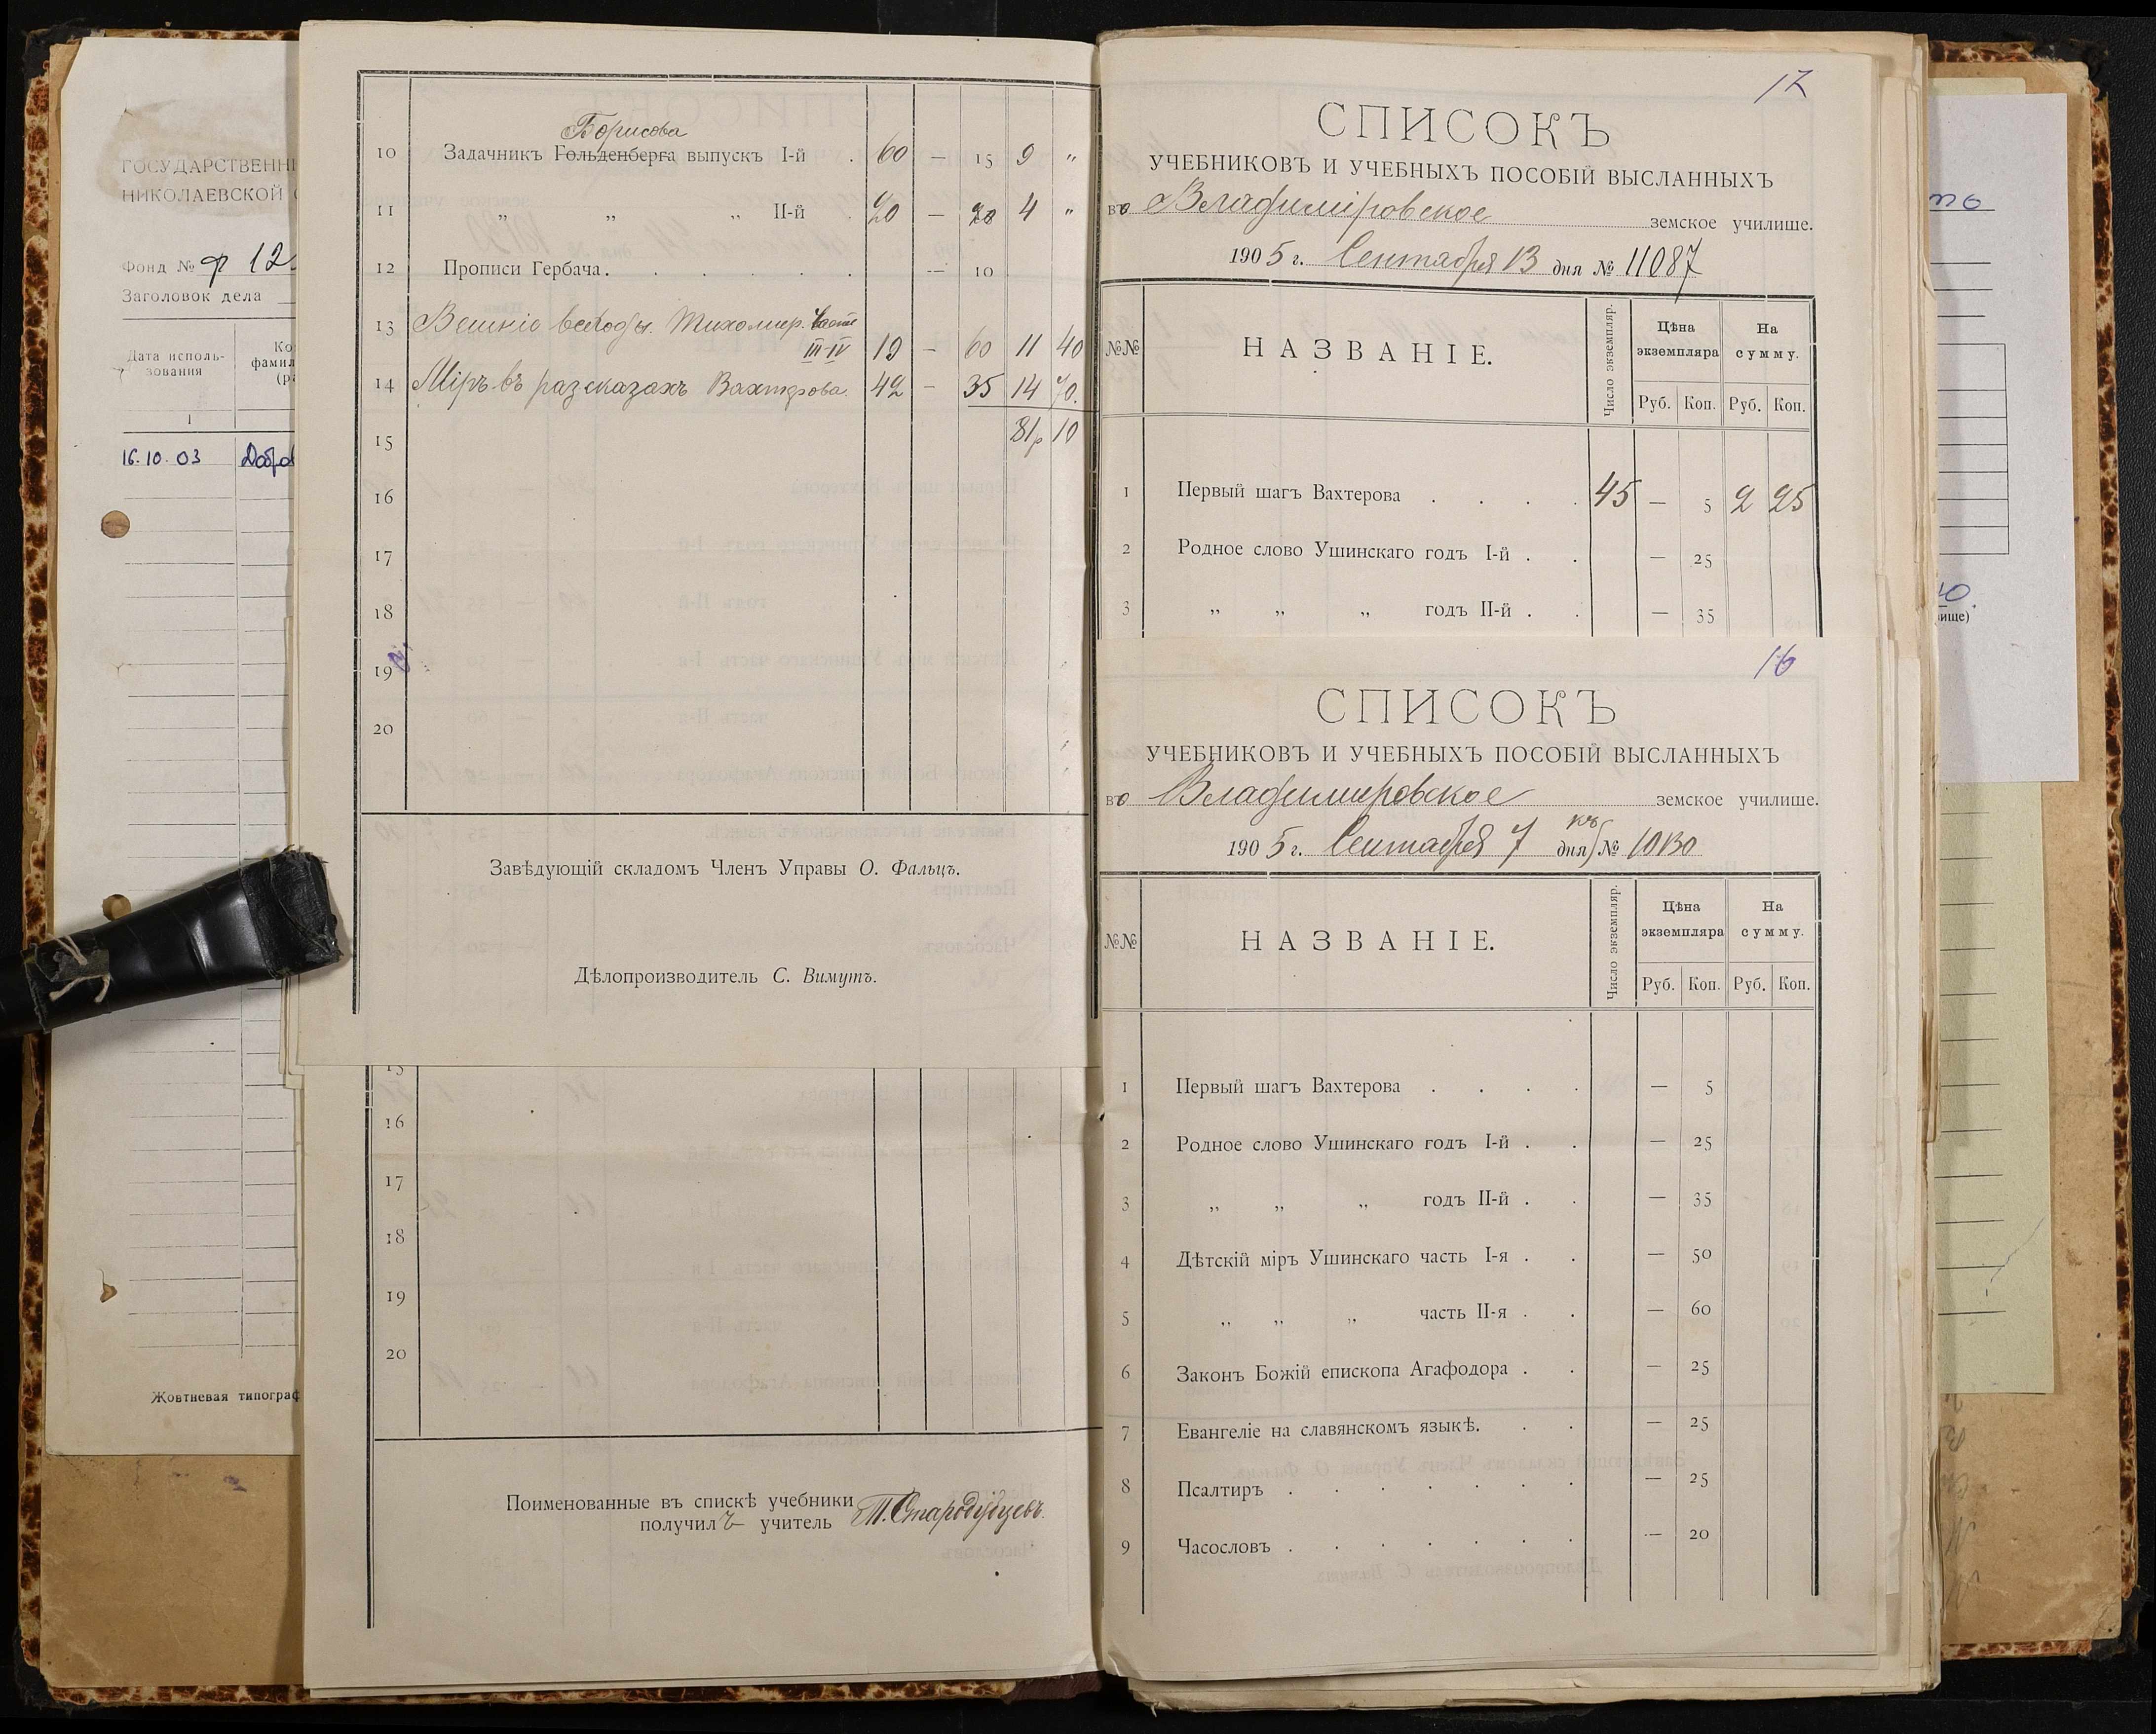 ГОСУДАРСТВЕННЫ
НИКОЛАЕВСКОЙ
Фонд № ф 12
Заголовок дела
Дата исполь-
зования
фамил
1
16.10.03 Добро
Жовтневая типограф
Борисова
10 Задачникъ Гольденберга выпускъ I-й . 60 — 15 9 „
11 „ „ „ II-й . 20 — 20 4 „
12 Прописи Гербача . . . . . . — 10
13 Вешніе всходы. Тихомир. части
III-IV 19 — 60 11 40
14 Міръ въ разсказахъ Вахтерова. 42 — 35 14 70.
15 81р 10
16
17
18
19
20
Завѣдующій складомъ Членъ Управы О. Фальцъ.
Дѣлопроизводитель С. Вимутъ.
15
16
17
18
19
20
Поименованные въ спискѣ учебники
получилъ учитель Т. Стародубцевъ.
17
СПИСОКЪ
УЧЕБНИКОВЪ И УЧЕБНЫХЪ ПОСОБІЙ ВЫСЛАННЫХЪ
во Владиміровское земское училище.
1905 г. Сентября 13 дня № 11087
№№ НАЗВАНІЕ. Число экземпляр. Цѣна экземпляра На сумму.
Руб. Коп. Руб. Коп.
1 Первый шагъ Вахтерова . . . . 45 — 5 2 25
2 Родное слово Ушинскаго годъ I-й . . — 25
3 „ „ „ годъ II-й . . — 35
16
СПИСОКЪ
УЧЕБНИКОВЪ И УЧЕБНЫХЪ ПОСОБІЙ ВЫСЛАННЫХЪ
во Владимировское земское училище.
къ
1905 г. Сентября 7 дня № 10130
№№ НАЗВАНІЕ. Число экземпляр. Цѣна экземпляра На сумму.
Руб. Коп. Руб. Коп.
1 Первый шагъ Вахтерова . . . . — 5
2 Родное слово Ушинскаго годъ I-й . . — 25
3 „ „ „ годъ II-й . . — 35
4 Дѣтскій міръ Ушинскаго часть I-я . . — 50
5 „ „ „ часть II-я . . — 60
6 Законъ Божій епископа Агафодора . . — 25
7 Евангеліе на славянскомъ языкѣ. . . — 25
8 Псалтиръ . . . . . . . — 25
9 Часословъ . . . . . . . — 20